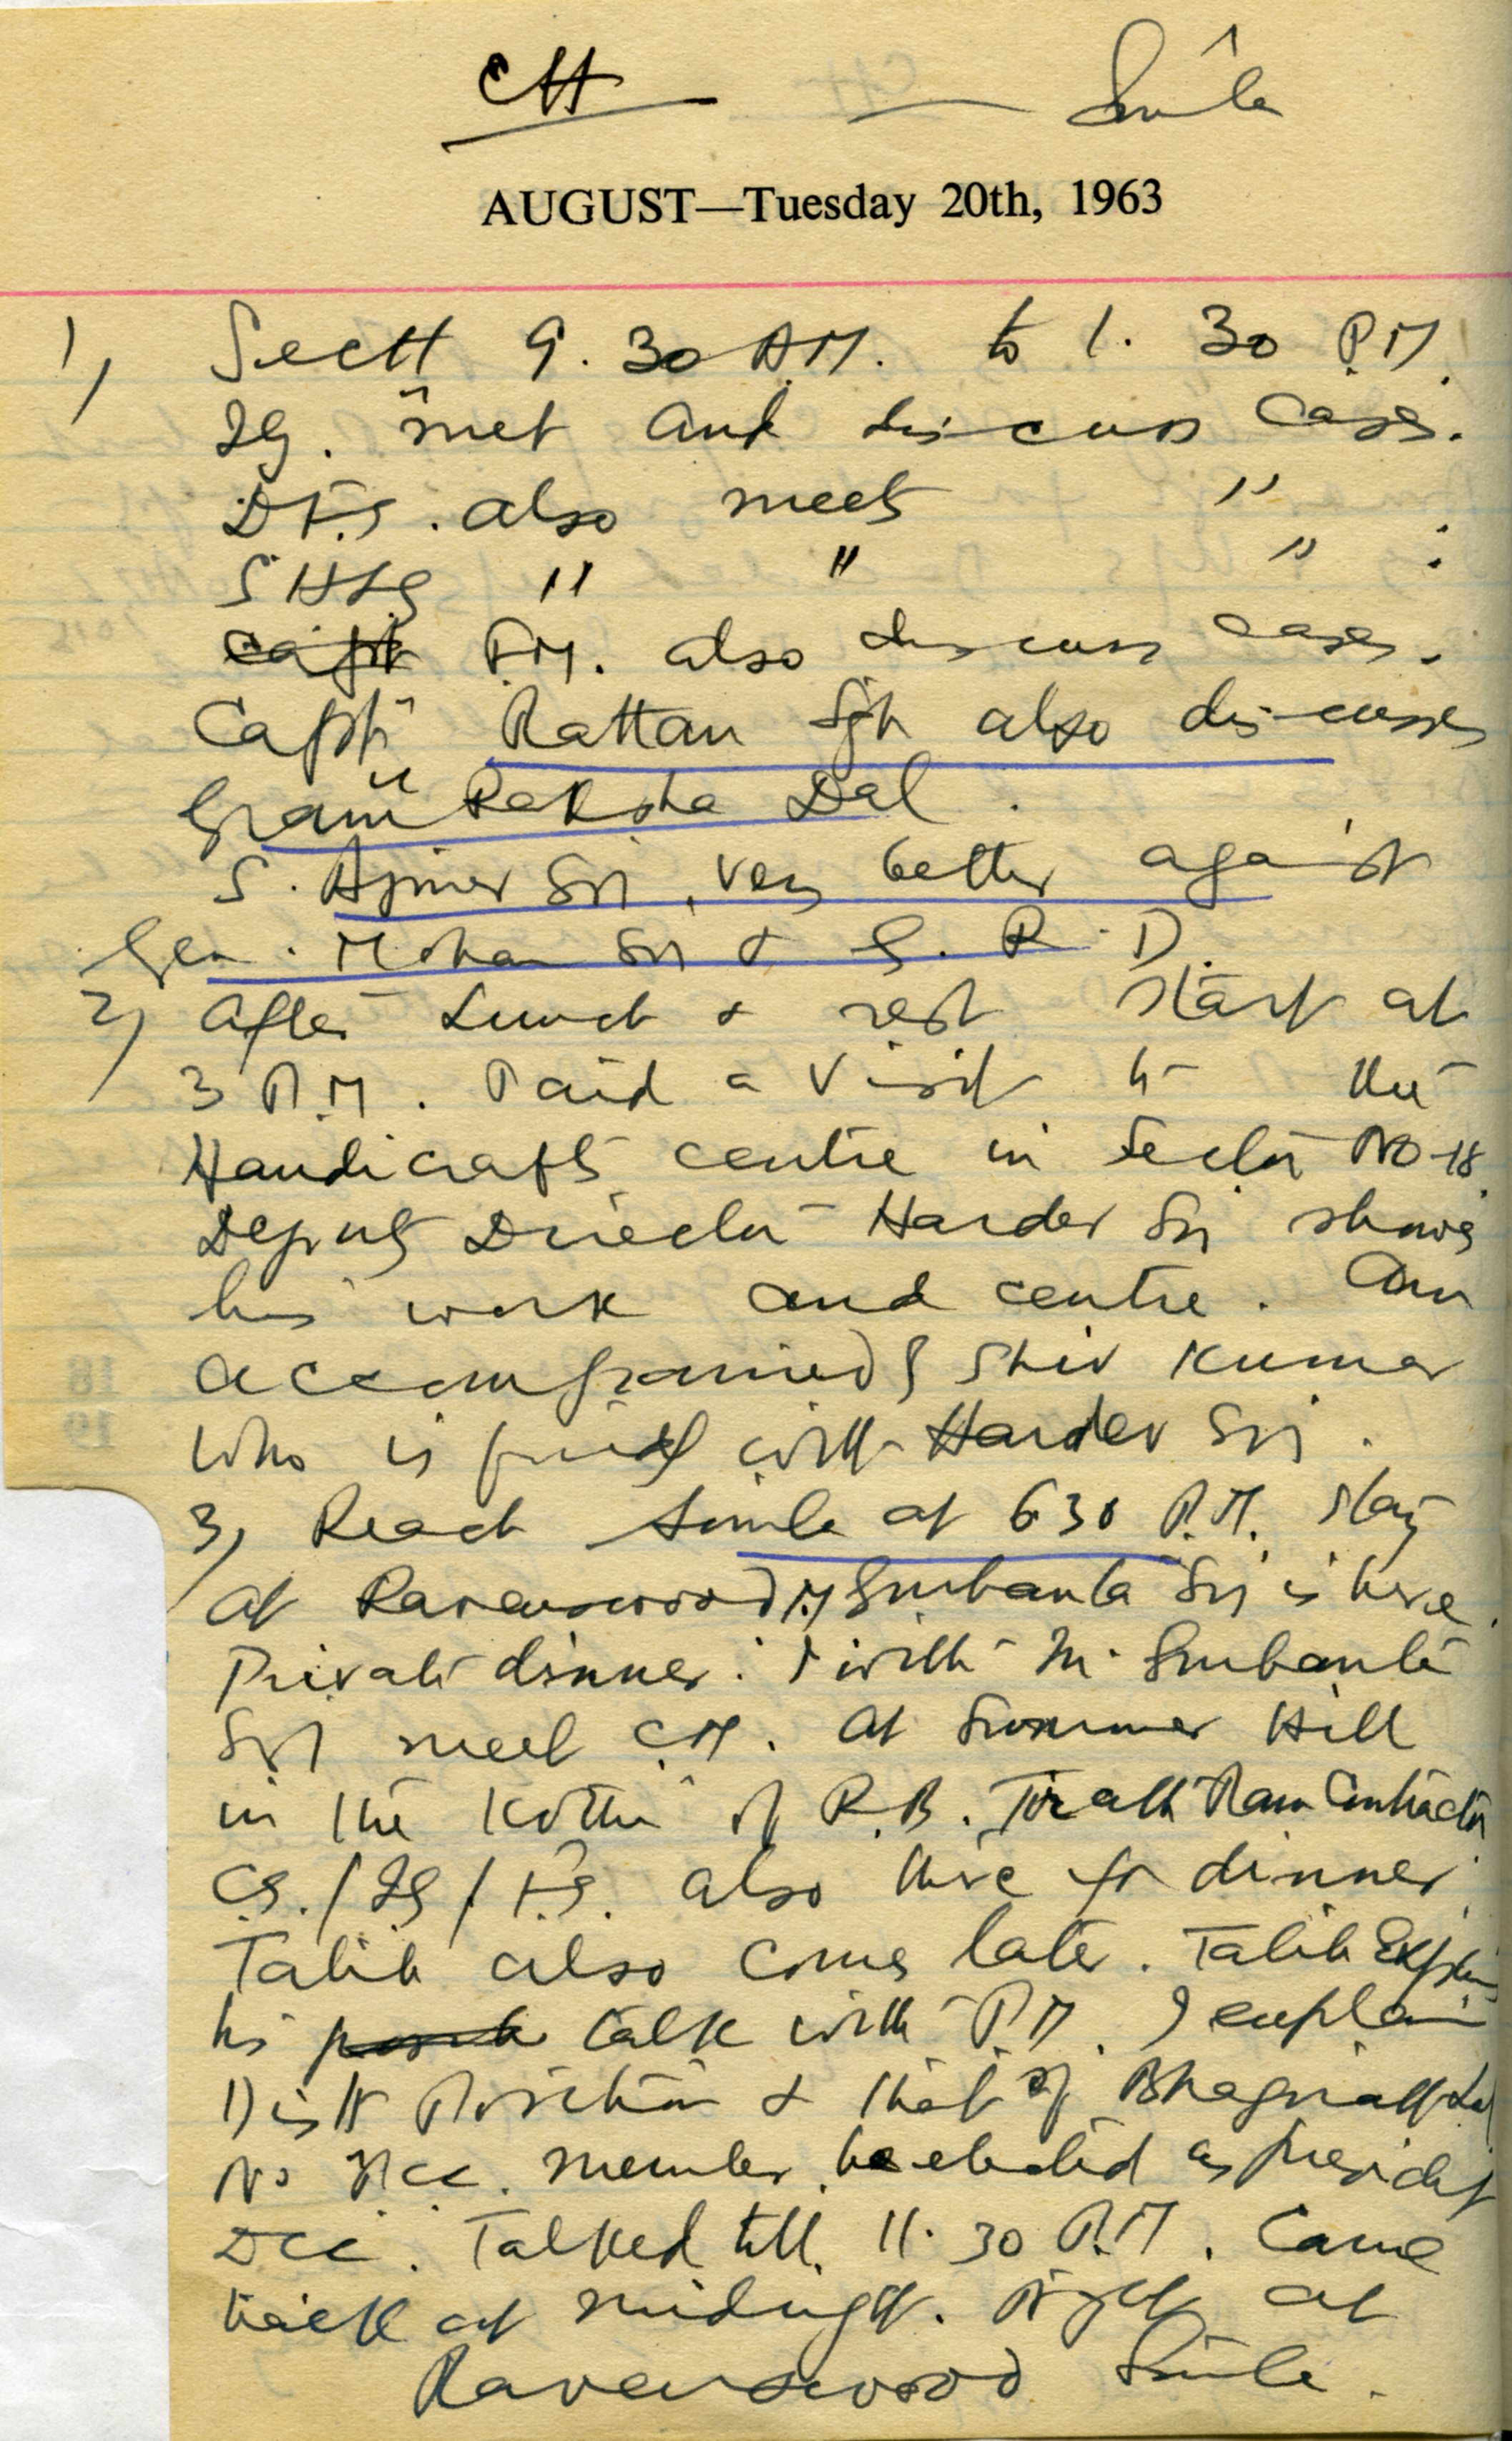 CH — Simla
AUGUST—Tuesday 20th, 1963
1) Sectt 9.30 A.M. to 1.30 P.M.
IG. met and discuss cases.
DIG. also meets " .
" " " :
Capt F.M. also discuss cases.
Capt Rattan Sgh also discusses
Gram Raksha Dal.
S. Ajmer Sri, very better against
Gen. Mohan Sri & G.R.D.
2) After Lunch & rest start at
3 P.M. Paid a visit to the
Handicrafts centre in Sector No-18.
Deputy Director Hardev Sri shows
his work and centre. Am
accompanied by Shiv Kumar
who is with Hardev Sri.
3) Reach Simla at 6 30 P.M. Stay
at Ravenswood, M Gurbanta Sri is here.
Private dinner. I with M. Gurbanta
Sri meet C.M. at Summer Hill
in the Kothi of R.B. Tirath Ram Contractor
CS./IG/ also there for dinner.
Talib also comes later. Talib Explains
his talk with P.M. I explain
Distt Position & that of
No Member be elected as president
DCC. Talked till 11.30 P.M. Came
back at midnight. Night at
Ravenswood Simla.